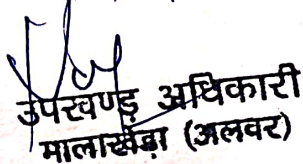 उपखण्ड़ अधिकारी
मालाखेड़ा (अलवर)